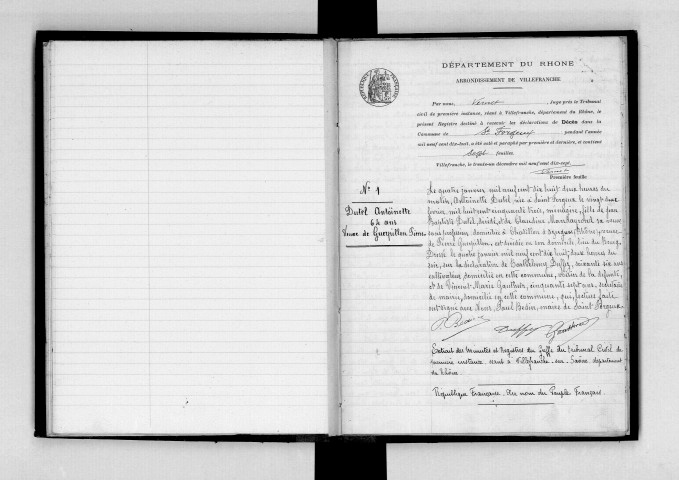 DÉPARTEMENT DU RHONE
ARRONDISSEMENT DE VILLEFRANCHE
Par nous, Juge près le Tribunal
civil de première instance, séant à Villefranche, département du Rhône, le
présent Registre destiné à recevoir les déclarations de Décès dans la
Commune de St Forgeux pendant l'année
mil neuf cent dix-huit, a été coté et paraphé par première et dernière, et contient
Sept feuilles
Villefranche, le trente-un décembre mil neuf cent dix-sept.
Première feuille
N° 1
Dutel Antoinette
64 ans
Veuve de Guerpillon Pierre
Le quatre janvier mil neuf cent dix huit deux heures du
matin, Antoinette Dutel née à Saint Forgeux le vingt deux
février mil huit cent cinquante trois, ménagère, fille de Jean
Baptiste Dutel, décédé, et de Claudine sa veuve
sans profession, domiciliée à Chatillon d'Azergues (Rhône), veuve
de Pierre Guerpillon, est décédée en son domicile, lieu du Bourg.
Dressé le quatre janvier mil neuf cent dix huit, deux heures du
soir, sur la déclaration de Barthélemy Duffy, soixante six ans
cultivateur, domicilié en cette commune, voisin de la défunte,
et de Vincent Marie Gauthier, cinquante sept ans, secrétaire
de mairie, domicilié en cette commune, qui, lecture faite
ont signé avec Nous, Paul Bedin, maire de Saint Forgeux.
Extrait des Minutes et Registres du Greffe du tribunal Civil de
première instance séant à Villefranche-sur-Saône département
du Rhône
République Française. Au nom du Peuple Français.